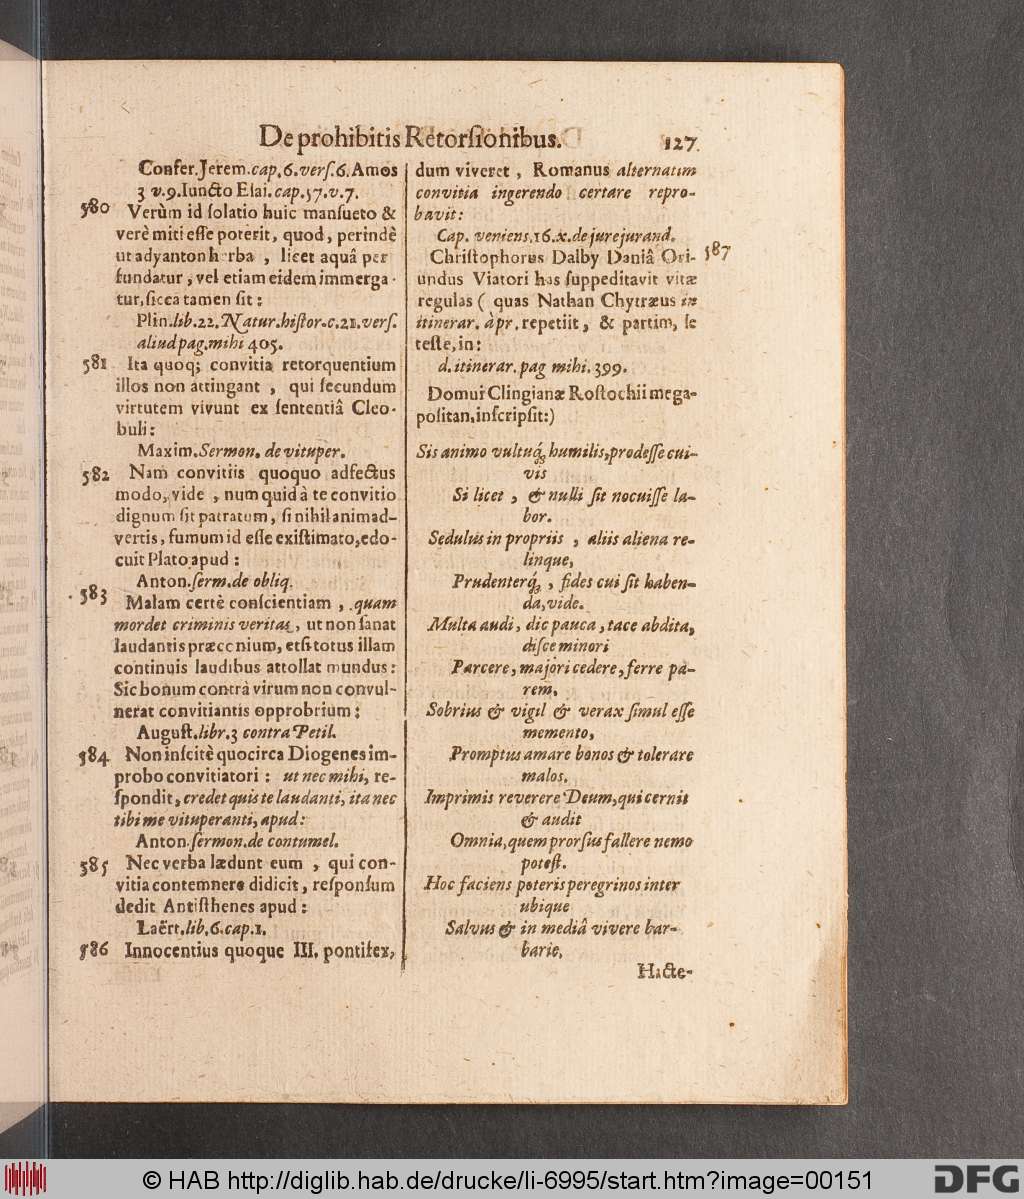 De prohibitis Retorſionibus. 127.
Confer. Jerem. cap. 6. verſ. 6. Amos
3 v. 9. Iuncto Eſai. cap. 57. v. 7.
580 Verùm id ſolatio huic manſueto &
verè miti eſſe poterit, quod, perindè
ut adyanton herba, licet aquâ per
fundatur, vel etiam eidem immerga-
tur, ſicca tamen ſit:
Plin. lib. 22. Natur. hiſtor. c. 21. verſ.
aliud pag. mihi 405.
581 Ita quoq; convitia retorquentium
illos non attingant, qui ſecundum
virtutem vivunt ex ſententiâ Cleo-
buli:
Maxim. Sermon. de vituper.
582 Nam convitiis quoquo adfectus
modo, vide, num quid à te convitio
dignum ſit patratum, ſi nihil animad-
vertis, fumum id eſſe exiſtimato, edo-
cuit Plato apud:
Anton. ſerm. de obliq.
583 Malam certè conſcientiam, quam
mordet criminis veritas, ut non ſanat
laudantis præconium, etſi totus illam
continuis laudibus attollat mundus:
Sic bonum contrà virum non convul-
nerat convitiantis opprobrium:
Auguſt. libr. 3 contra Petil.
584 Non inſcitè quocirca Diogenes im-
probo convitiatori: ut nec mihi, re-
ſpondit, credet quis te laudanti, ita nec
tibi me vituperanti, apud:
Anton. ſermon. de contumel.
585 Nec verba lædunt eum, qui con-
vitia contemnere didicit, reſponſum
dedit Antiſthenes apud:
Laërt. lib. 6. cap. 1.
586 Innocentius quoque III. pontifex,
dum viveret, Romanus alternatim
convitia ingerendo certare repro-
bavit:
Cap. veniens. 16. x. de jurejurand.
Chriſtophorus Dalby Daniâ Ori- 587
undus Viatori has ſuppeditavit vitæ
regulas (quas Nathan Chytræus in
itinerar. à pr. repetiit, & partim, ſe
teſte, in:
d. itinerar. pag mihi. 399.
Domui Clingianæ Roſtochii mega-
politan, inſcripſit:)
Sis animo vultuq́; humilis, prodeſſe cui-
vis
Si licet, & nulli ſit nocuiſſe la-
bor.
Sedulus in propriis, aliis aliena re-
linque,
Prudenterq́;, fides cui ſit haben-
da, vide.
Multa audi, dic pauca, tace abdita,
diſce minori
Parcere, majori cedere, ferre pa-
rem,
Sobrius & vigil & verax ſimul eſſe
memento,
Promptus amare bonos & tolerare
malos.
Imprimis reverere Deum, qui cernit
& audit
Omnia, quem prorſus fallere nemo
poteſt.
Hoc faciens poteris peregrinos inter
ubique
Salvus & in mediâ vivere bar-
barie.
Hacte-
© HAB http://diglib.hab.de/drucke/li-6995/start.htm?image=00151
DFG